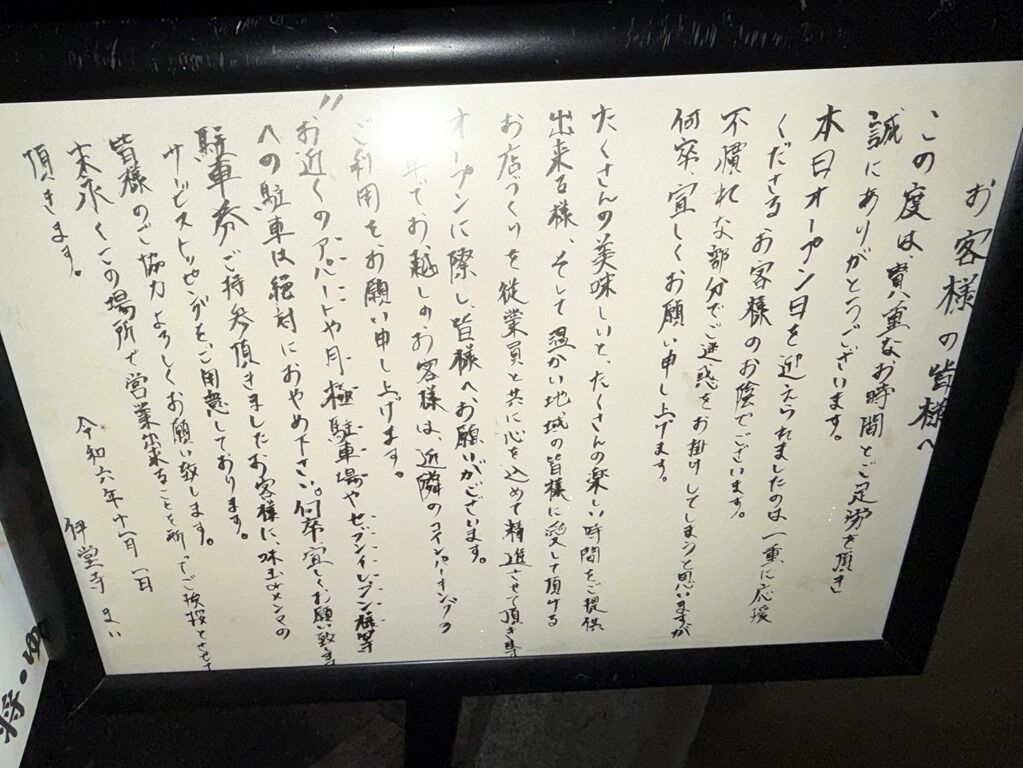 お客様の皆様へ
この度は、貴重なお時間とご足労を頂き
誠にありがとうございます。
本日オープン日を迎えられましたのは
くださるお客様のお陰でございます。一重に応援
不慣れな部分でご迷惑をお掛けしてしまうと思いますが
何卒、宜しくお願い申し上げます。
たくさんの美味しいと、たくさんの楽しい時間をご提供
出来る様、そして温かい地域の皆様に愛して頂ける
お店づくりを従業員と共に心を込めて精進させて頂きます
オープンに際し、皆様へお願いがございます。
車でお越しのお客様は、近隣のコインパーキングの
ご利用をお願い申し上げます。
〃お近くのアパートや月極駐車場やセブンイレブン様等
への駐車は絶対におやめ下さい。何卒宜しくお願い致します
駐車券ご持参頂きましたお客様に、味玉orメンマの
サービストッピングをご用意しております。
皆様のご協力よろしくお願い致します。
末永くこの場所で営業出来ることを祈ってご挨拶とさせて
頂きます。
令和六年十一月一日
伊堂寺 まい
将